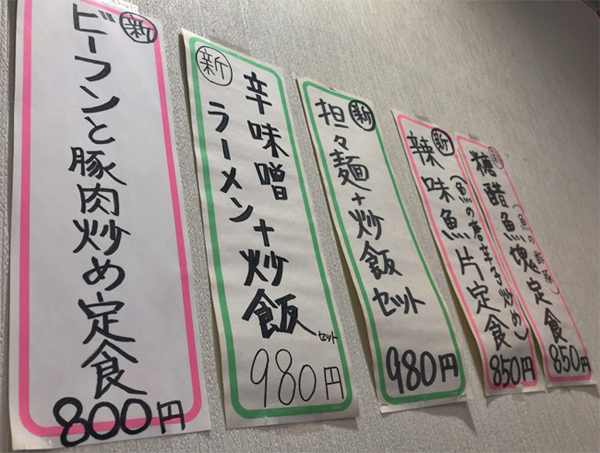 新
ビーフンと豚肉炒め定食
800円
新
辛味噌
ラーメン+炒飯
セット
980円
新
担々麺+炒飯
セット
980円
新
辣味魚片定食
(魚の唐辛子炒め)
850円
新
糖醋魚塊定食
850円